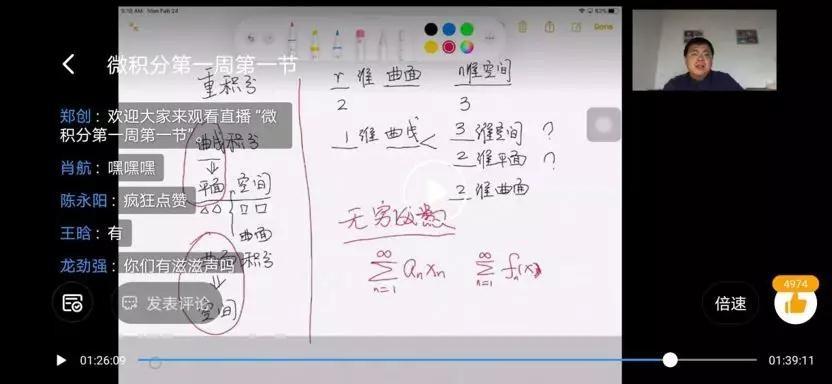 9:18 AM Mon Feb 24
62%
Done
微积分第一周第一节
重积分
r 维 曲面 n维空间
2 3
郑创：欢迎大家来观看直播“微
积分第一周第一节”。
曲线积分
1 维 曲线 3 维空间 ?
肖航：嘿嘿嘿
2 维平面 ?
平面 空间
陈永阳：疯狂点赞
2 维曲面
曲面
王晗：有
无穷级数
龙劲强：你们有滋滋声吗
曲面积分
∞ ∞
∑ aₙxₙ ∑ fₙ(x)
n=1 n=1
空间
发表评论
倍速
4974
01:26:09
01:39:11